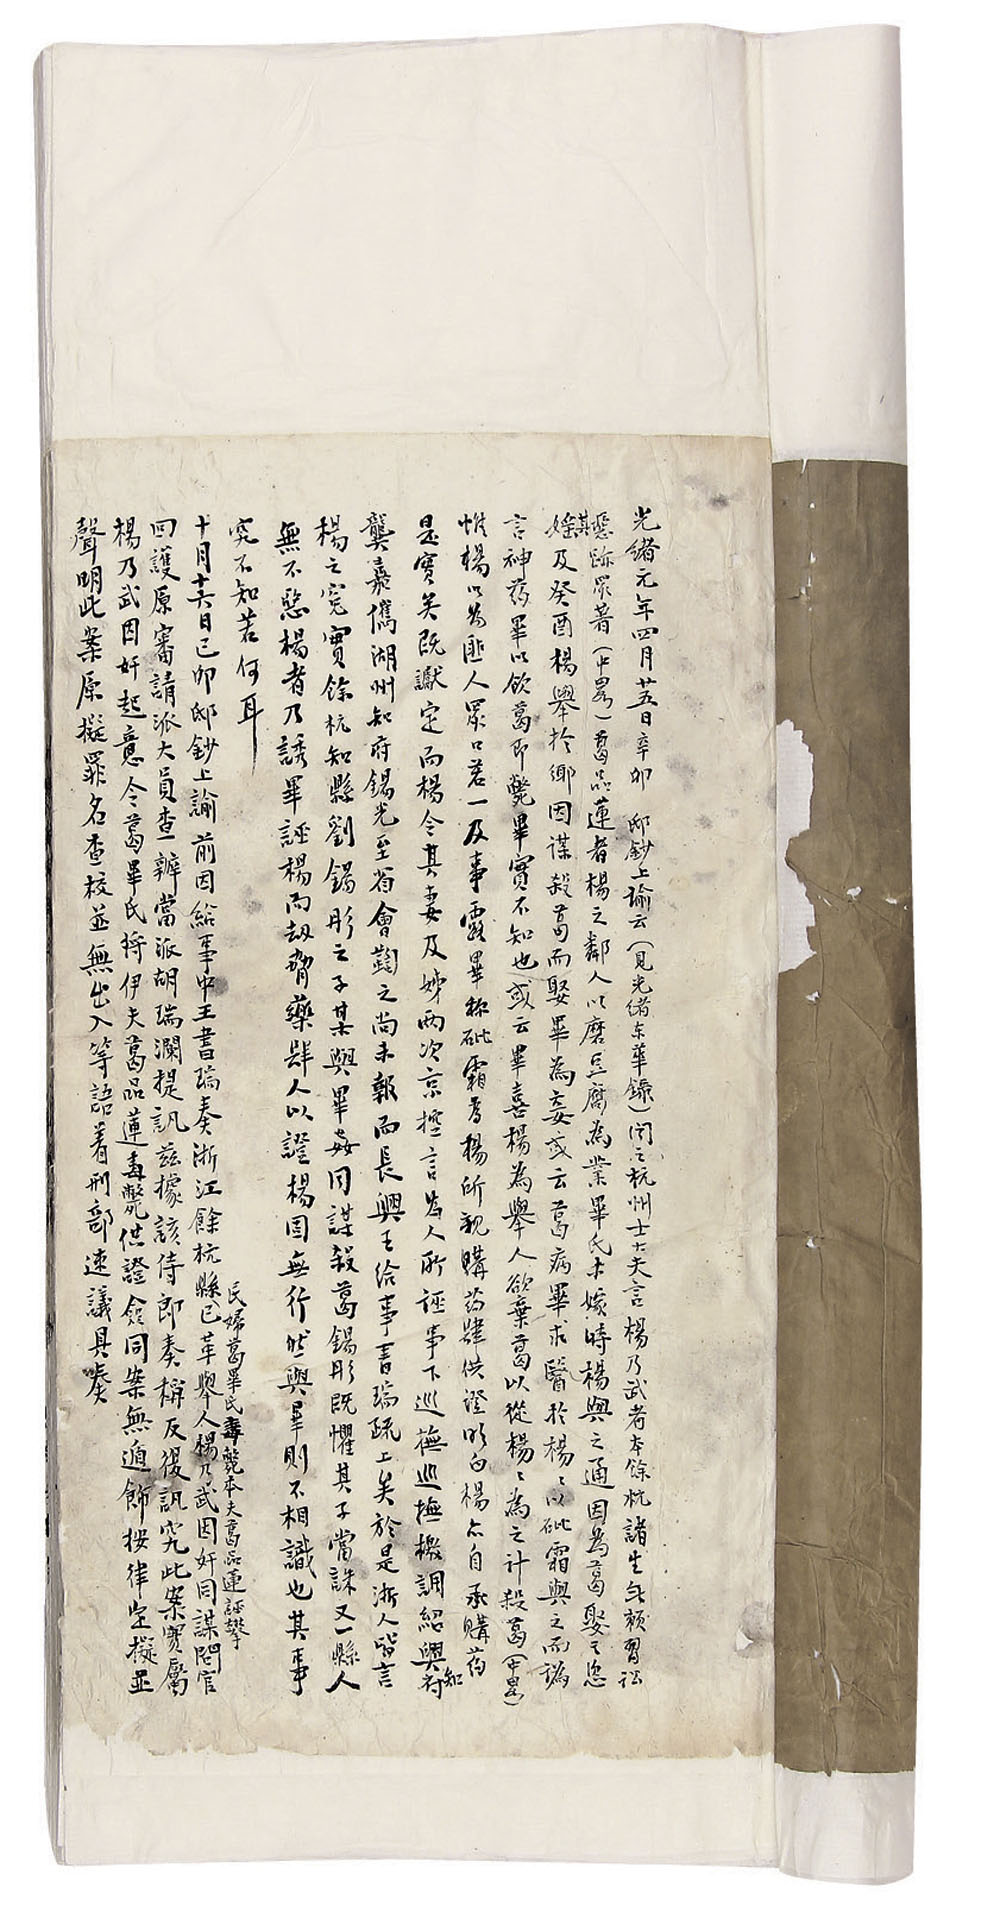 光緒元年四月廿五日辛卯 邸鈔上諭云(見光緒東華錄)聞之杭州士大夫言楊乃武者本餘杭諸生無賴習訟
惡跡眾著(中畧)葛品蓮者楊之鄰人以磨豆腐為業畢氏未嫁時楊與之通因為葛娶之恣
其婬及癸酉楊舉於鄉因謀殺葛而娶畢為妾或云葛病畢求醫於楊楊以砒霜與之而譌
言神葯畢以飲葛即斃畢實不知也或云畢喜楊為舉人欲棄葛以從楊楊為之計殺葛(中畧)
惟楊以為匪人眾口若一及事露畢称砒霜為楊所親購葯肆供證明白楊亦自承購葯
是實矣既讞定而楊令其妻及娣兩次京控言為人所誣事下巡撫巡撫檄調紹興府知
龔嘉儁湖州知府錫光至省會鞫之尚未報而長興王給事書瑞疏上矣於是浙人皆言
楊之寃實餘杭知縣劉錫彤之子某與畢姦同謀殺葛錫彤既懼其子當誅又一縣人
無不惡楊者乃誘畢誣楊而劫脅藥肆人以證楊固無行然與畢則不相識也其事
究不知若何耳
十月十六日己卯邸鈔上諭前因給事中王書瑞奏浙江餘杭縣已革舉人楊乃武因奸同謀問官
民婦葛畢氏毒斃本夫葛品蓮誣攀
回護原審請派大員查辦當派胡瑞瀾提訊茲據該侍郎奏稱反復訊究此案實屬
楊乃武因奸起意令葛畢氏將伊夫葛品蓮毒斃供證僉同案無遁飾按律定擬並
聲明此案原擬罪名查核並無出入等語着刑部速議具奏